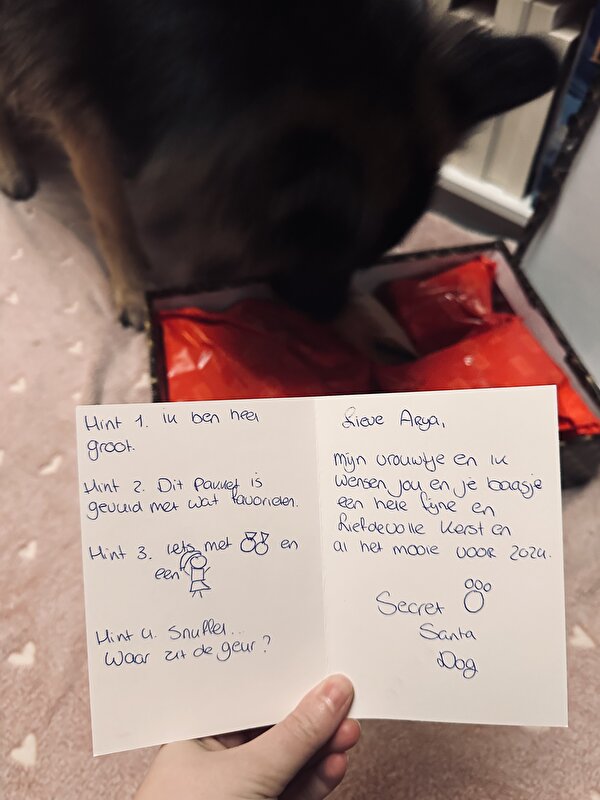 Hint 1. ik ben heel
groot.
Hint 2. Dit pakket is
gevuld met wat favorieten.
Hint 3. iets met en
een
Hint 4. Snuffel...
Waar zit de geur?
Lieve Arya,
mijn vrouwtje en ik
wensen jou en je baasje
een hele fijne en
liefdevolle Kerst en
al het mooie voor 2024.
Secret
Santa
Dog